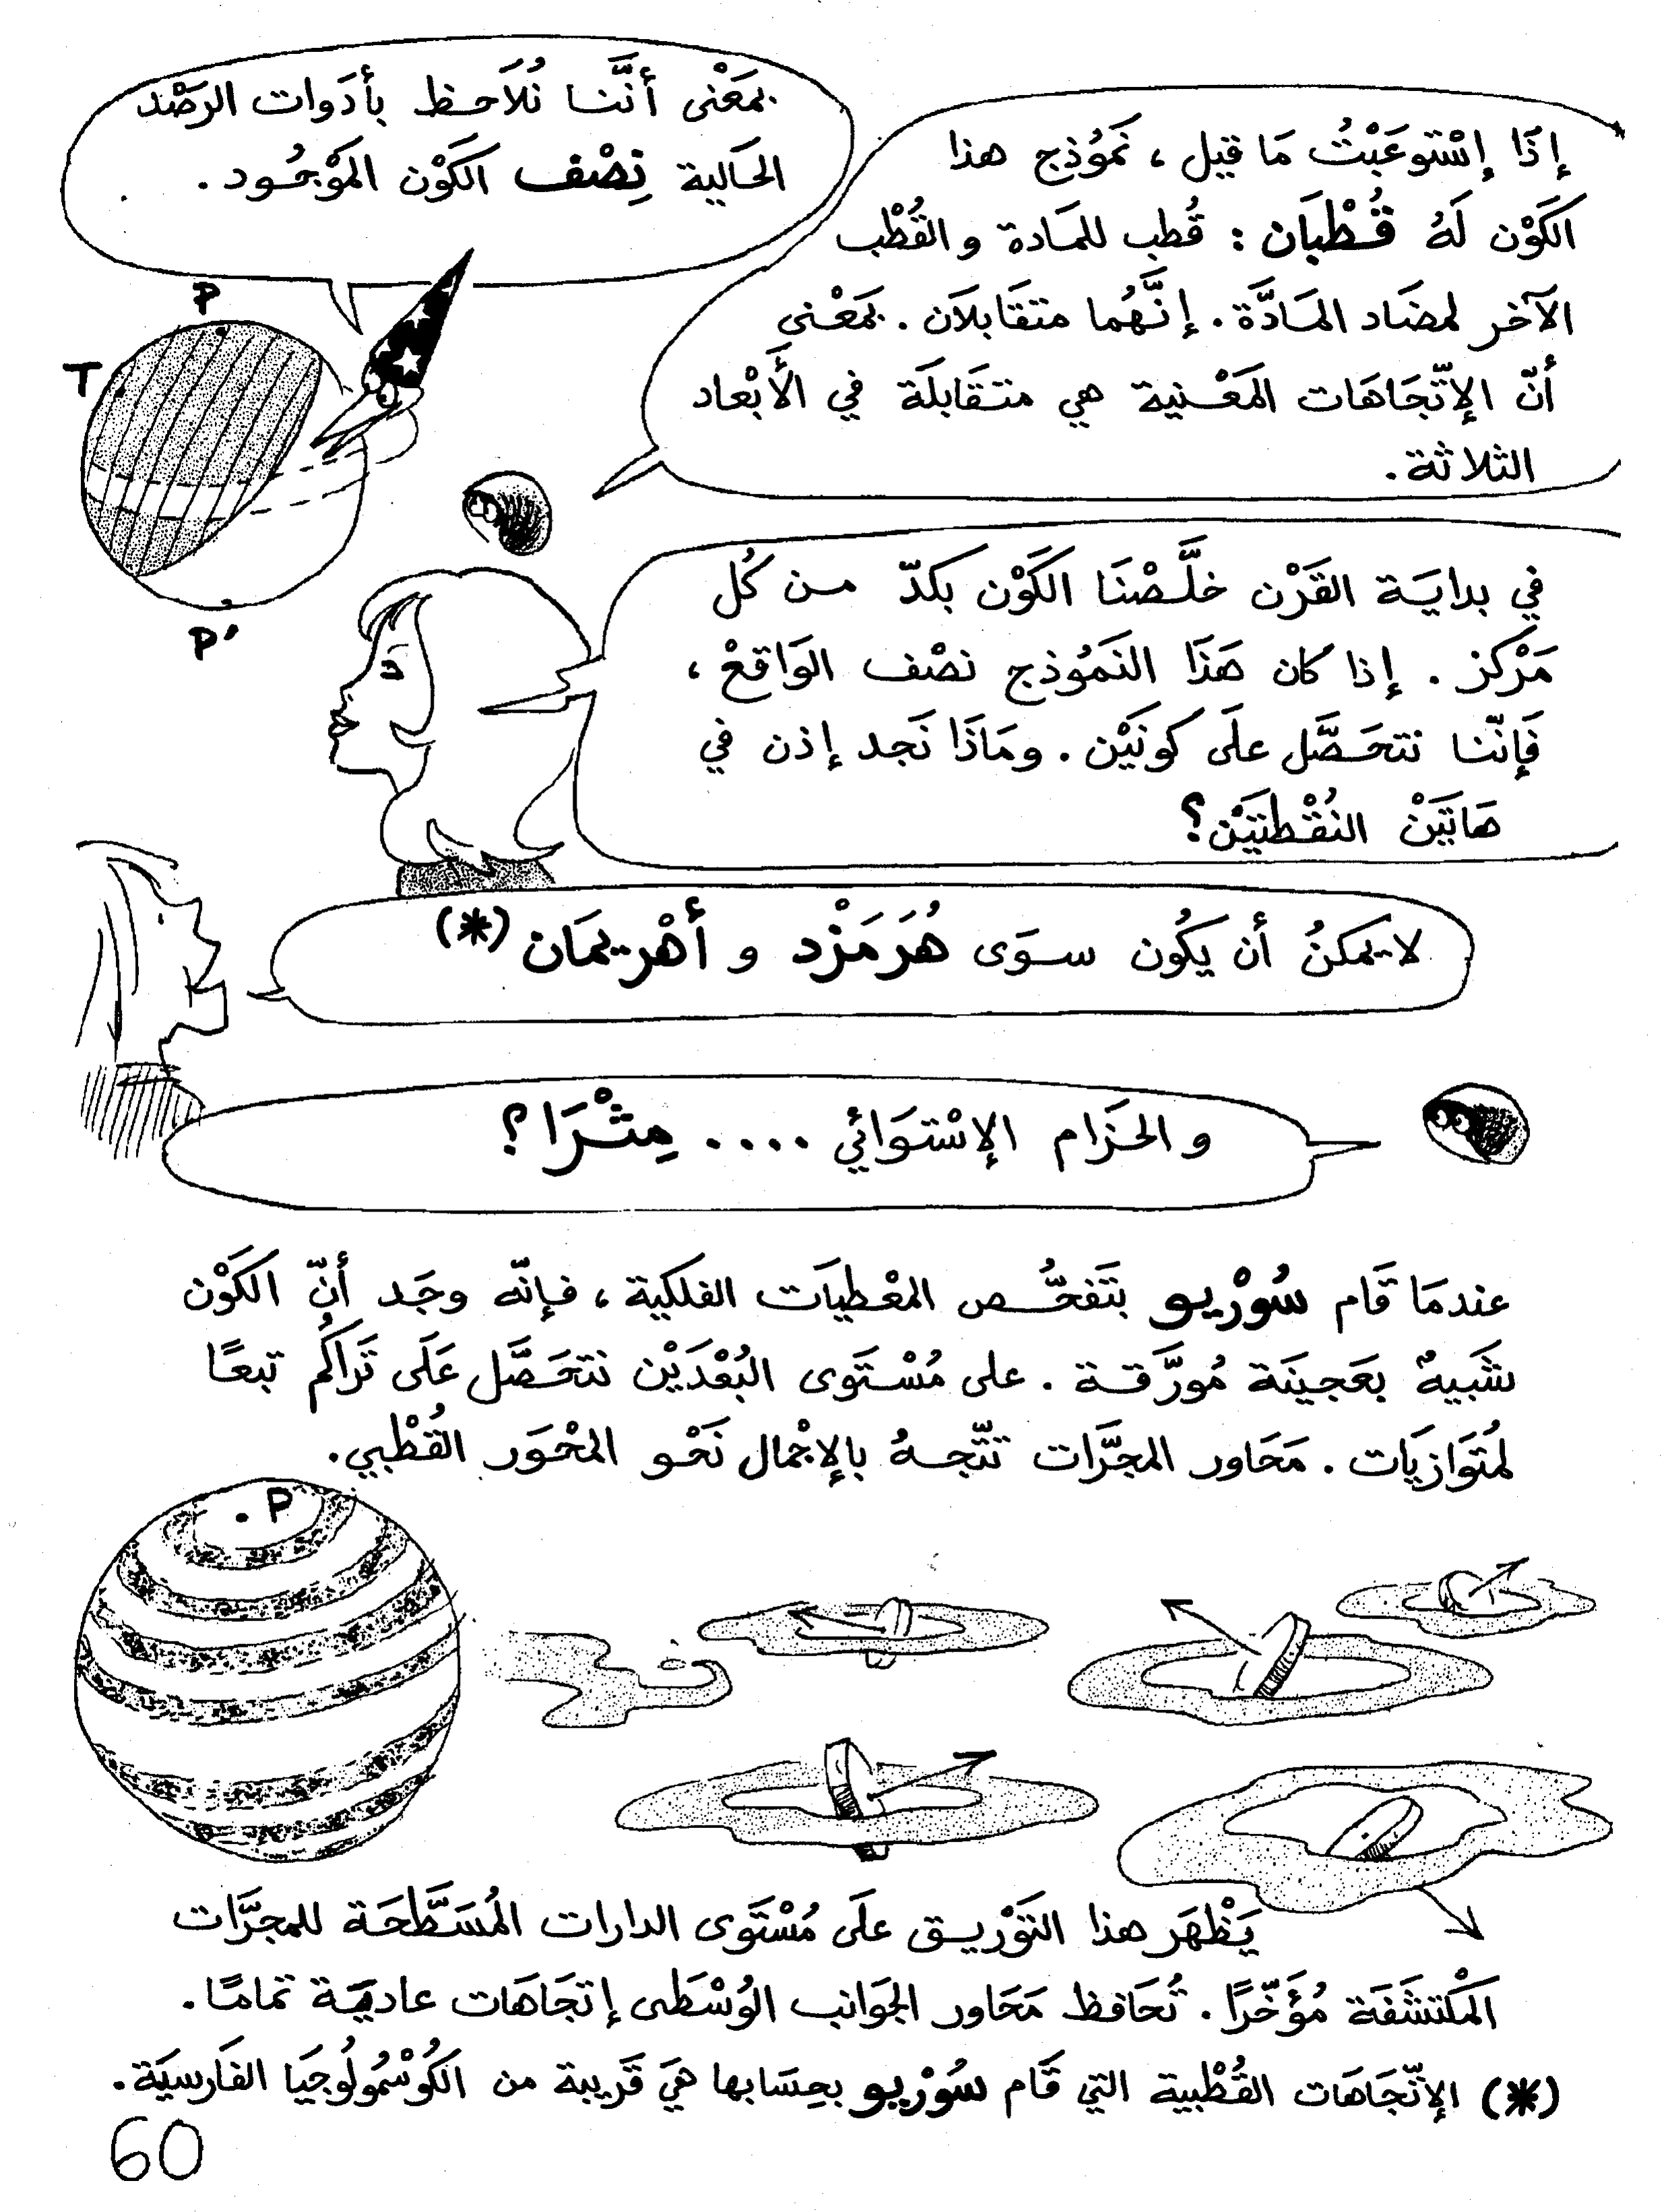 بمَعْنى أنَّنا نُلاَحظ بأدَوات الرَصْد
الحَالية نِصْف الكَوْن المَوْجُود.
إذَا إسْتوعَبْتُ مَا قيل، نَمُوذج هذا
الكَوْن لَهُ قُطْبَان : قُطب للمَادة و القُطْب
الآخر لمضَاد المَادَّة. إنَّهُما متقَابلاَن. بمَعْنى
أنّ الإتّجَاهَات المَعْنية هي متقَابلَة في الأَبْعاد
الثلاثة.
P
T
P'
في بدايَة القَرْن خلَّصْنَا الكَوْن بكدّ من كُل
مَرْكز. إذا كان هَذَا النَمُوذج نصْف الوَاقعْ،
فَإنّنا نتحَصَّل علَى كونَيْن. ومَاذَا نَجد إذن في
هَاتَيَنْ النُقْطتيَيْن؟
لا يمكنُ أن يكُون سوَى هُرَمَزْد و أهْريمَان (*)
و الحَزَام الإسْتوَائي .... مِثْرَا؟
عندمَا قَام سُورْيو بتَفحُّص المعْطيَات الفلكية، فإنّه وجَد أنّ الكَوْن
شَبيهٌ بعَجينَة مُورَّقة. على مُسْتَوى البُعْدَيْن نتحَصَّل عَلَى تَراكُم تبعًا
لمُتَوَازيَات. مَحَاور المجرَّات تتّجهُ بالإجْمال نَحْو المحْوَر القُطْبي.
. P
يَظْهَر هذا التَوْريق علَى مُسْتَوى الدارات المُسَطَّحَة للمجرَّات
المَكْتشَفَة مُؤَخّرًا. تُحَافظ مَحَاور الجَوَانب الوُسْطَى إتجَاهَات عاديَة تمامًا.
(*) الإتّجَاهَات القُطْبية التي قَام سُورْيو بحِسَابها هيَ قَريبة من الكُوسْمُولُوجيَا الفَارسيَة.
60